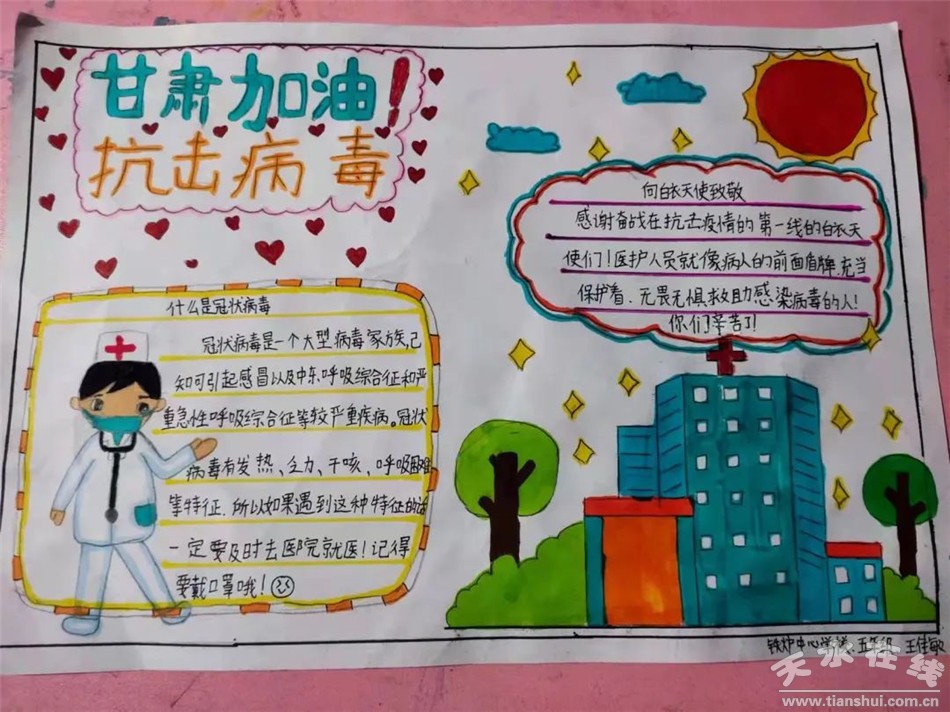 甘肃加油!
抗击病毒
向白衣天使致敬
感谢奋战在抗击疫情的第一线的白衣天
使们!医护人员就像病人的前面盾牌.充当
保护着.无畏无惧救助感染病毒的人!
你们辛苦了!
什么是冠状病毒
冠状病毒是一个大型病毒家族,已
知可引起感冒以及中东呼吸综合征和严
重急性呼吸综合征等较严重疾病。冠状
病毒有发热、乏力、干咳、呼吸困难
等特征.所以如果遇到这种特征的话
一定要及时去医院就医!记得
要戴口罩哦!
铁炉中心学校 五年级 王佳敏
天水在线
www.tianshui.com.cn